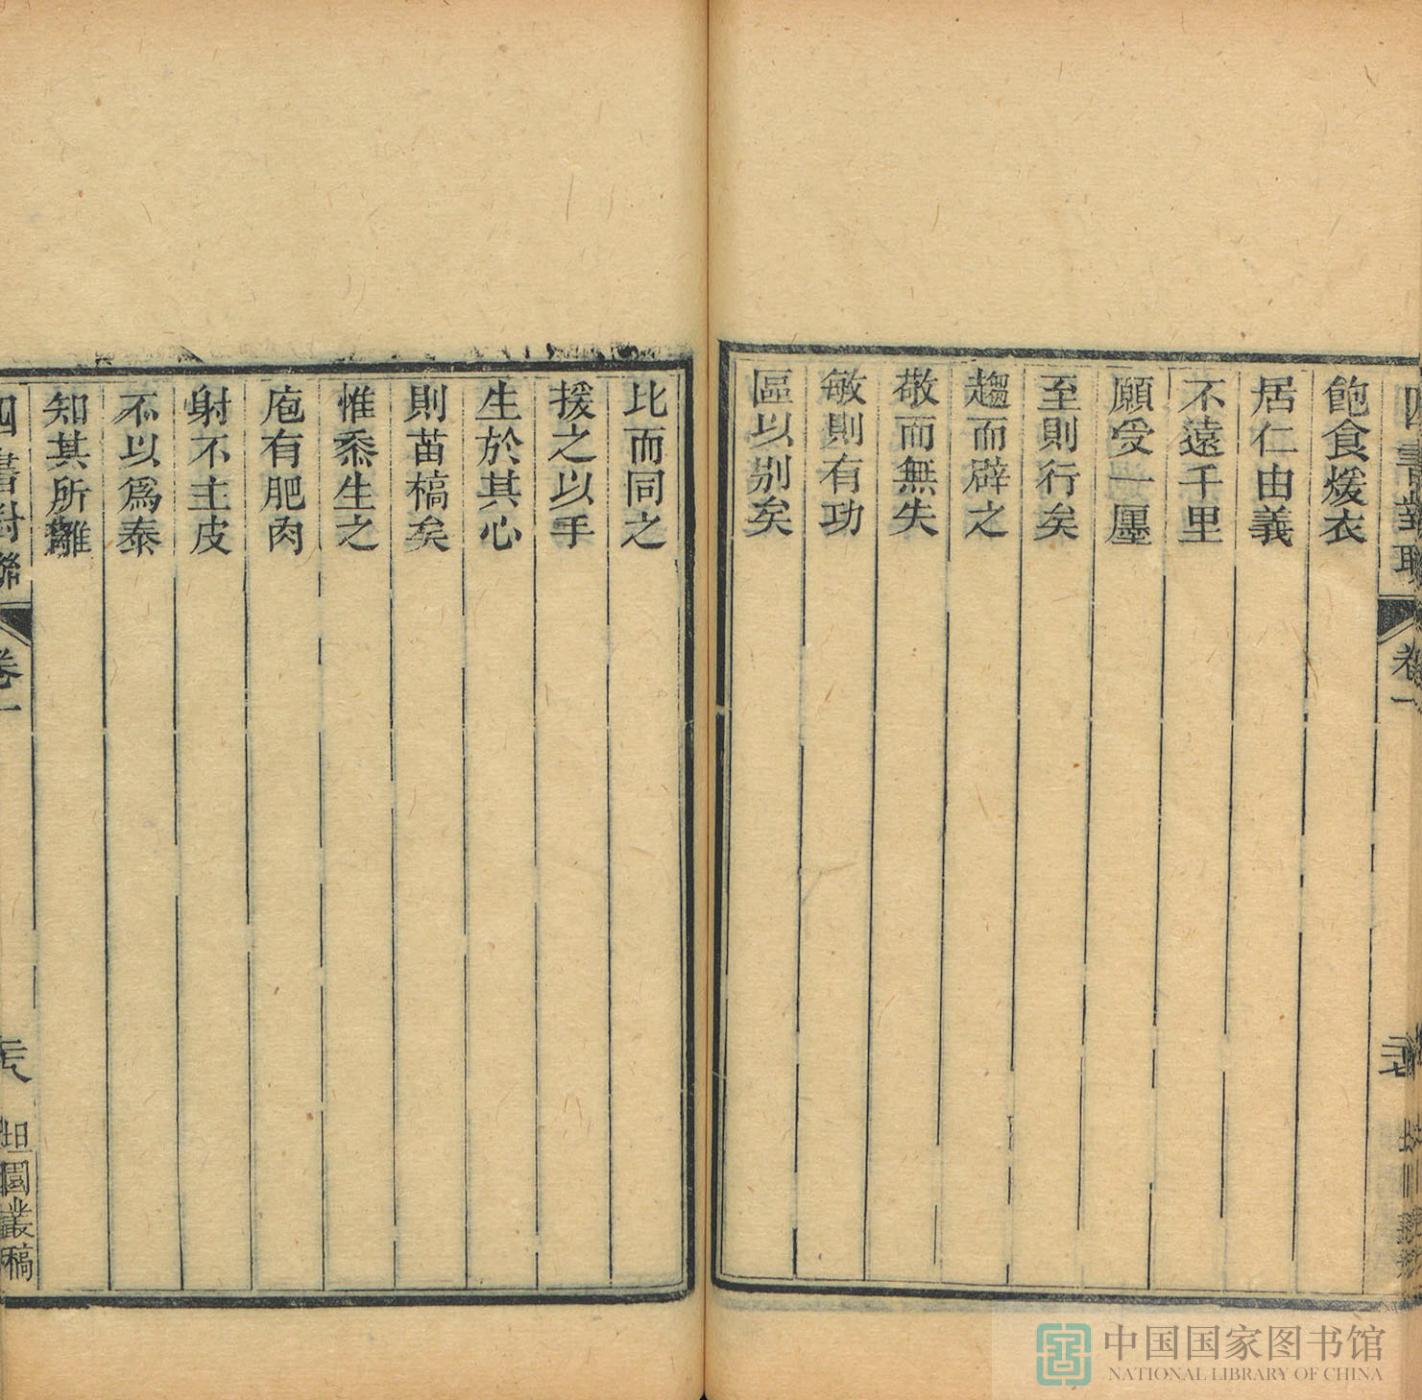 四書對聯 卷一
飽食煖衣
居仁由義
不遠千里
願受一廛
至則行矣
趨而辟之
敬而無失
敏則有功
區以别矣
比而同之
援之以手
生於其心
則苗槁矣
惟黍生之
庖有肥肉
射不主皮
不以爲泰
知其所離
四書對聯 卷一 二八 坦園叢稿
中国国家图书馆
NATIONAL LIBRARY OF CHINA